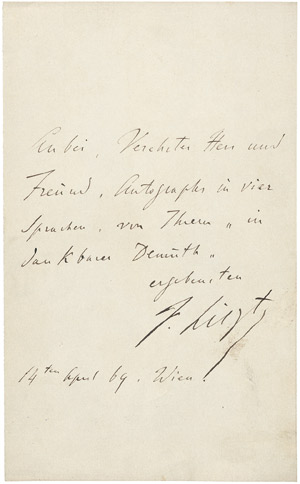 Anbei, Verehrter Herr und
Freund, Autographe in vier
Sprachen, von Ihrem „in
dankbarer Demuth„
ergebensten
F. Liszt
14ten April 69. Wien.